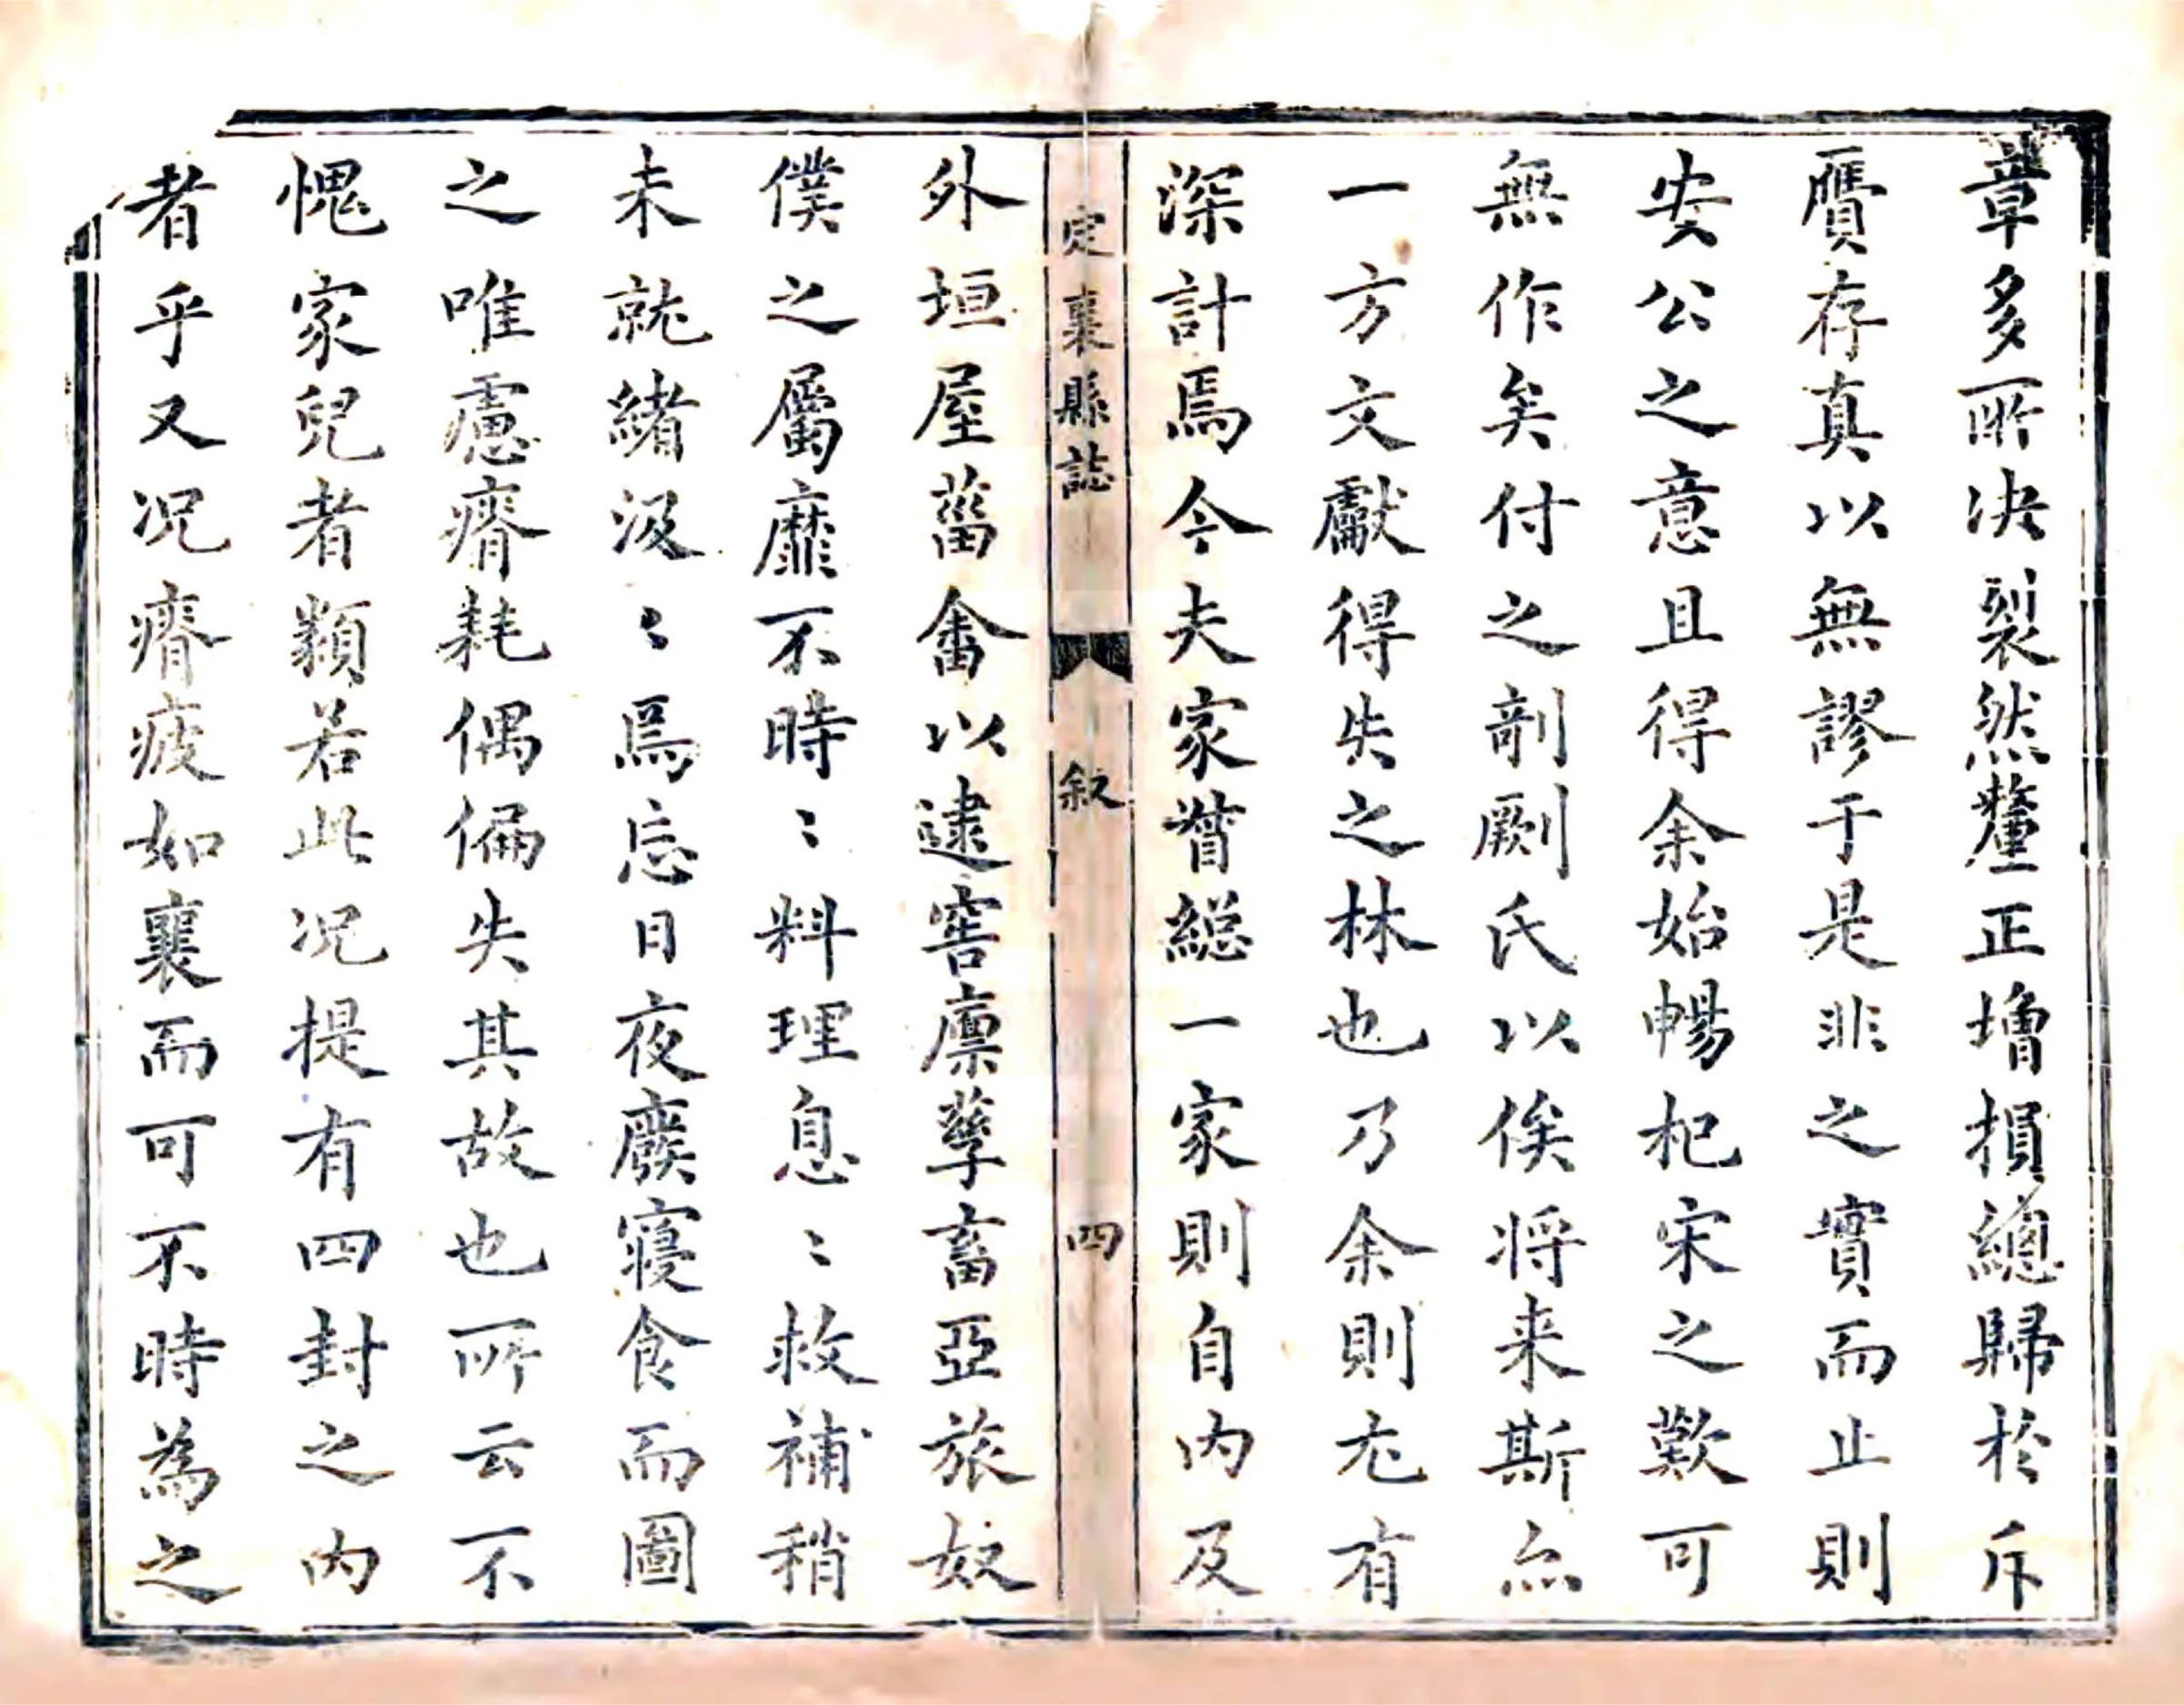 章多所决裂然釐正增損總歸於斥
贗存真以無謬于是非之實而止則
安公之意且得余始暢杞宋之歎可
無作矣付之剞劂氏以俟将来斯亦
一方文獻得失之林也乃余則尤有
深計焉今夫家督総一家則自内及
定襄縣誌
敘
四
外垣屋菑畬以逮窖廪孳畜亞旅奴
僕之屬靡不時〻料理息〻救補稍
未就緒汲〻焉忘日夜廢寢食而圖
之唯慮瘠耗偶偏失其故也所云不
愧家兒者類若此况提有四封之内
者乎又况瘠疲如襄而可不時為之